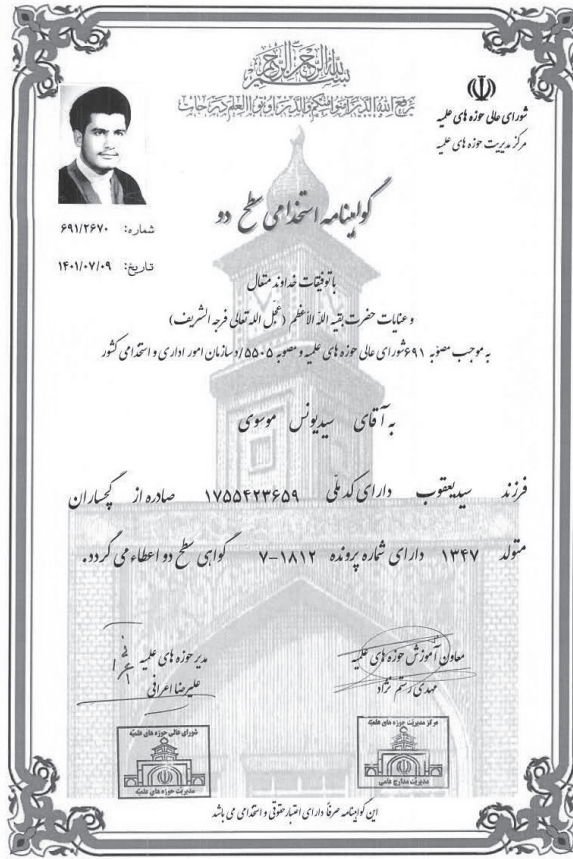 بسم الله الرحمن الرحیم
یرفع الله الذین آمنوا منکم والذین اوتوا العلم درجات
شورای عالی حوزه های علمیه
مرکز مدیریت حوزه های علمیه
گواهینامه استخدامی سطح دو
شماره: ۶۹۱/۲۶۷۰
تاریخ: ۱۴۰۱/۰۷/۰۹
با توفیقات خداوند متعال
و عنایات حضرت بقیه الله الأعظم (عجل الله تعالی فرجه الشریف)
به موجب مصوبه ۶۹۱ شورای عالی حوزه های علمیه و مصوبه ۵۵۰۵/د سازمان امور اداری و استخدامی کشور
به آقای سیدیونس موسوی
فرزند سیدیعقوب دارای کد ملی ۱۷۵۵۴۲۳۶۵۹ صادره از گچساران
متولد ۱۳۴۷ دارای شماره پرونده ۱۸۱۲-۷ گواهی سطح دو اعطاء می گردد.
معاون آموزش حوزه های علمیه
مهدی رستم نژاد
مدیر حوزه های علمیه
علیرضا اعرافی
مرکز مدیریت حوزه های علمیه
مدیریت مدارج علمی
شورای عالی حوزه های علمیه
مدیریت حوزه های علمیه
این گواهینامه صرفا دارای اعتبار حقوقی و استخدامی می باشد